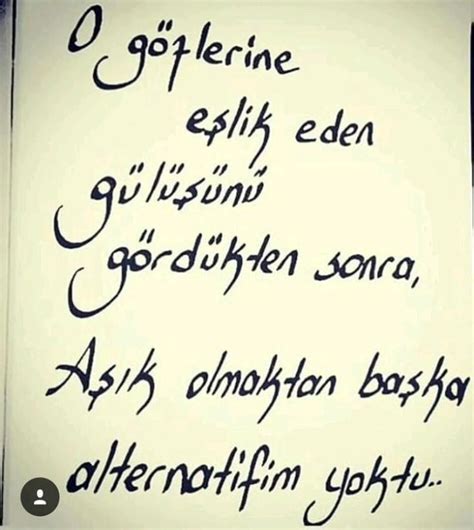 O gözlerine
eşlik eden
gülüşünü
gördükten sonra,
Aşık olmaktan başka
alternatifim yoktu..